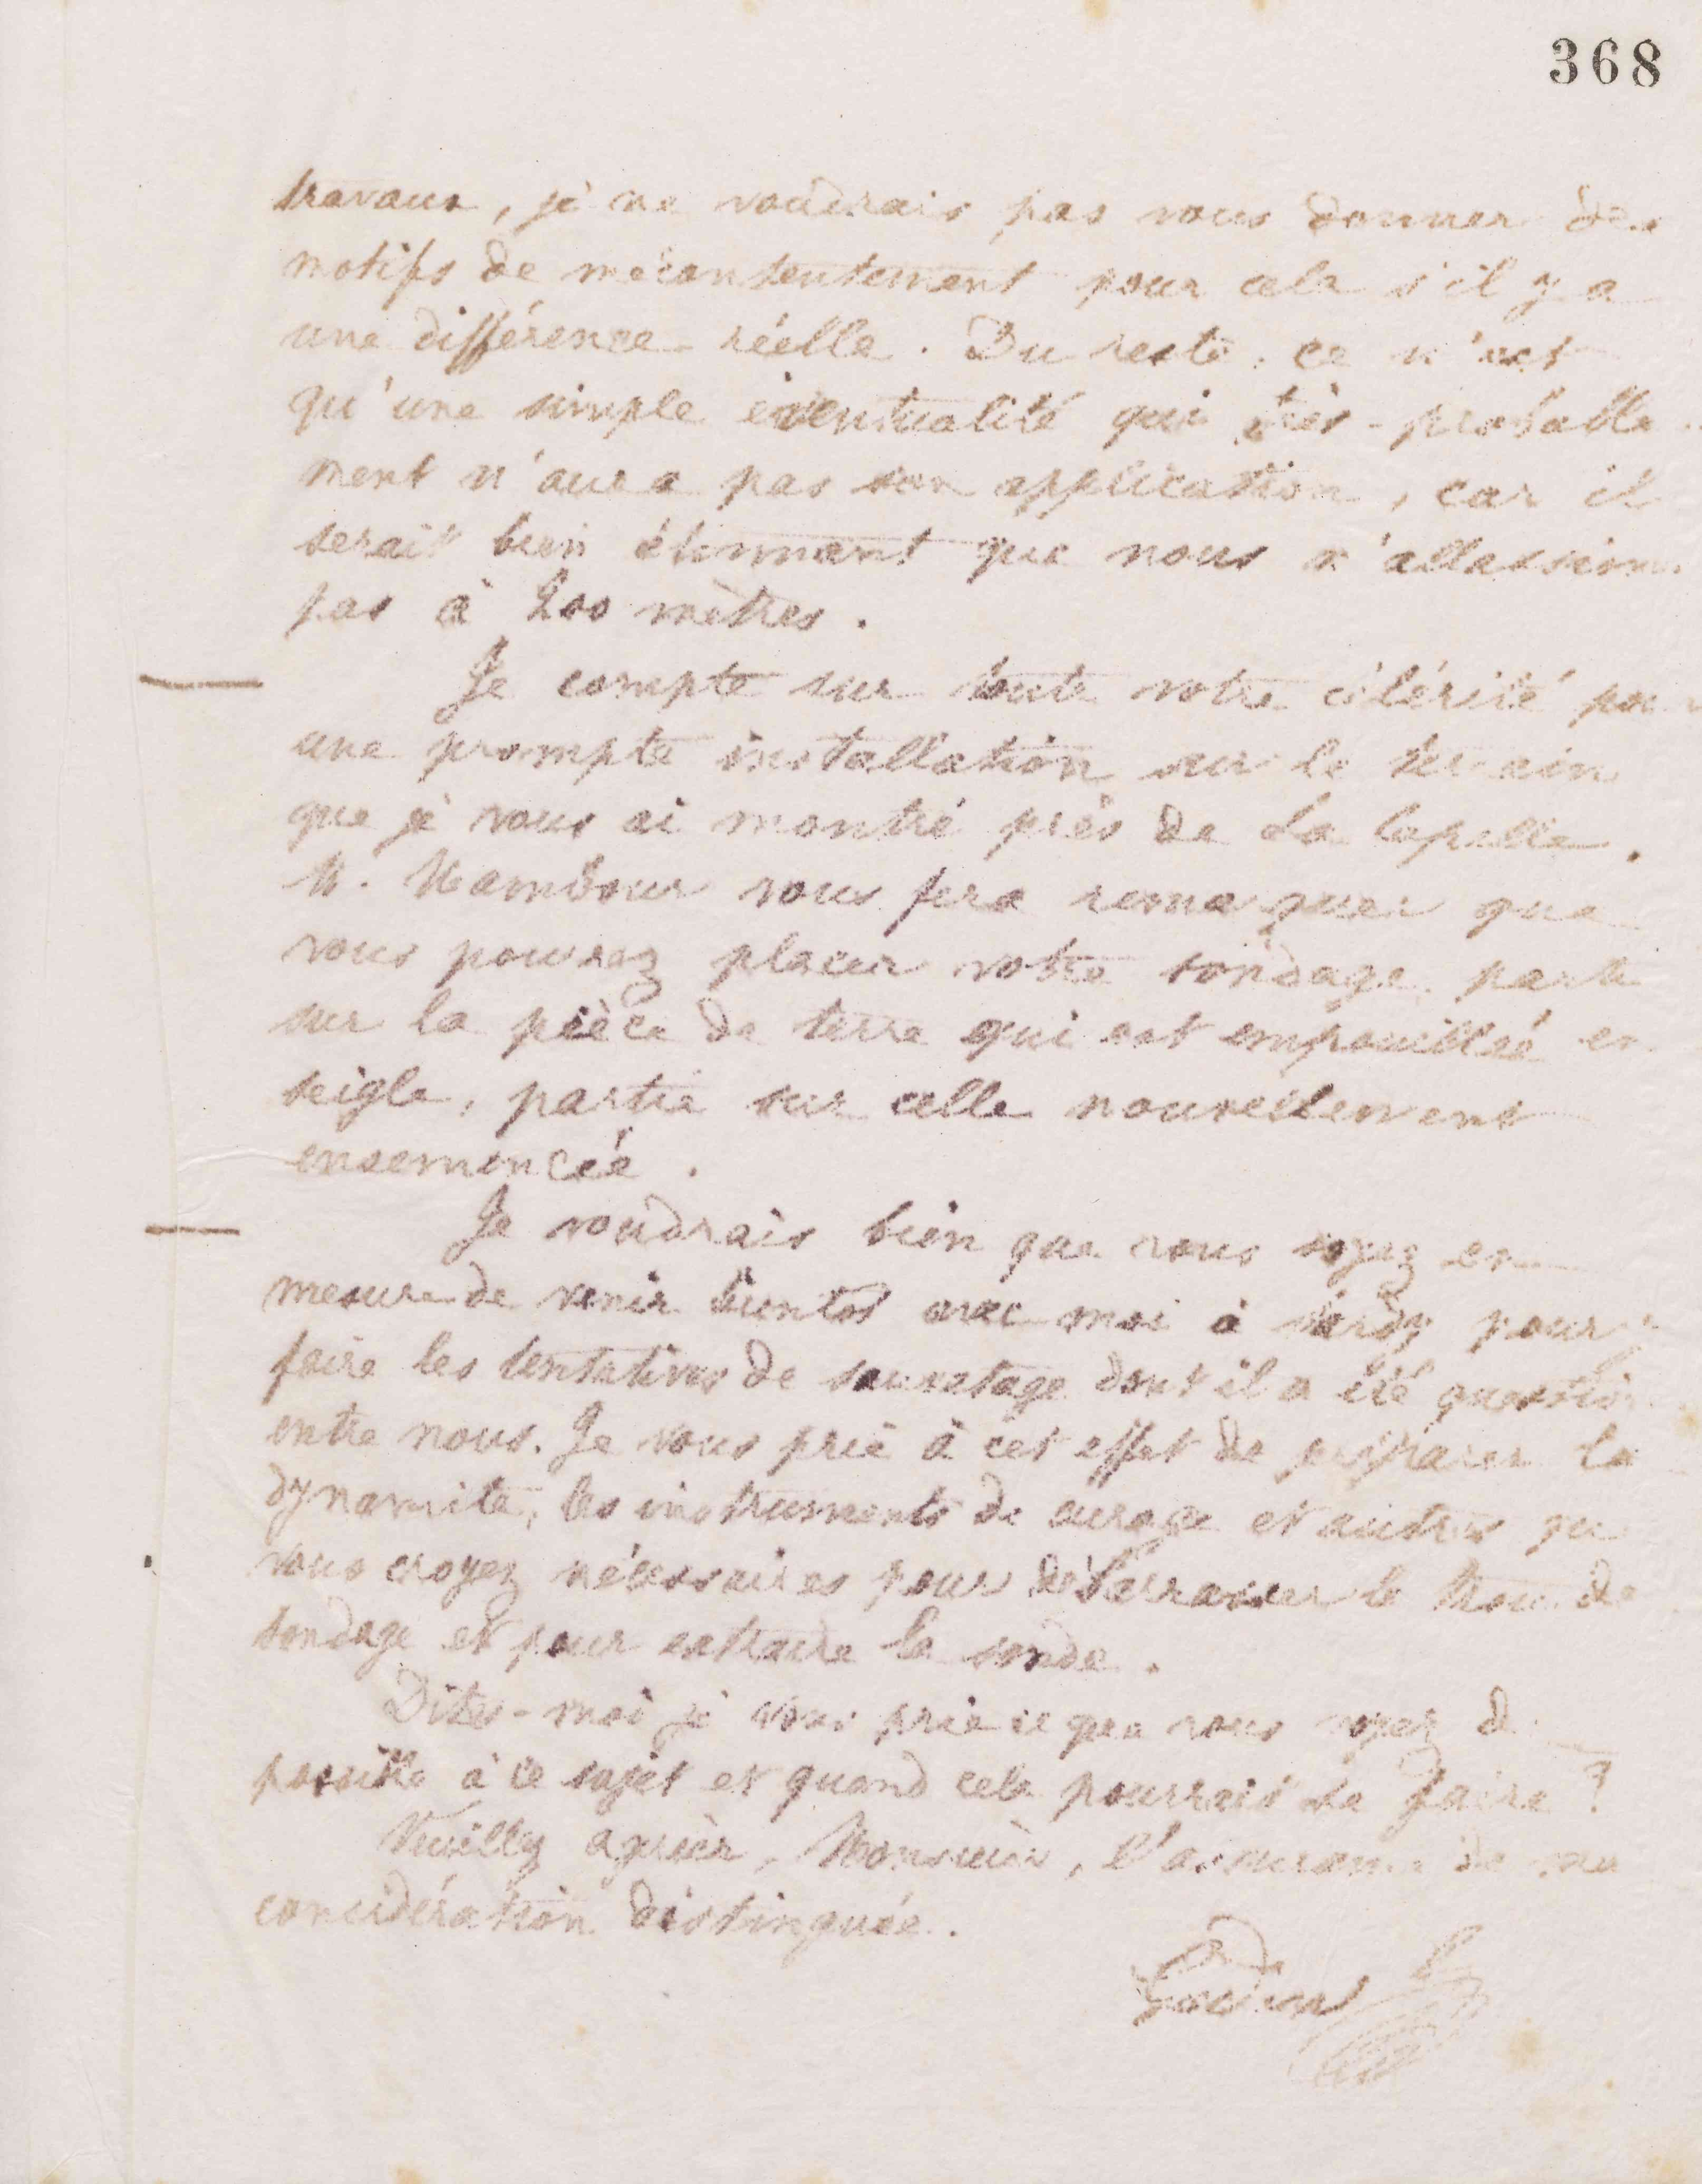 368
travaux, je ne voudrais pas vous donner des
motifs de mécontentement pour cela s'il y a
une différence réelle. Du reste, ce n'est
qu'une simple éventualité qui très-probable-
ment n'aura pas son application, car il
serait bien étonnant que nous n'allassions
pas à 200 mètres.
Je compte sur toute votre célérité pour
une prompte installation sur le terrain
que je vous ai montré près de La Capelle.
M. vous fera remarquer que
vous pourrez placer votre sondage partie
sur la pièce de terre qui est empouillée en
seigle, partie sur celle nouvellement
ensemencée.
Je voudrais bien que vous soyez en
mesure de venir bientôt avec moi à pour y
faire les tentatives de sauvetage dont il a été question
entre nous. Je vous prie à cet effet de préparer la
dynamite, les instruments de curage et autres que
vous croyez nécessaires pour débarrasser le trou de
sondage et pour extraire la sonde.
Dites-moi je vous prie ce que vous voyez de
possible à ce sujet et quand cela pourrait se faire ?
Veuillez agréer, Monsieur, l'assurance de ma
considération distinguée.
Godin